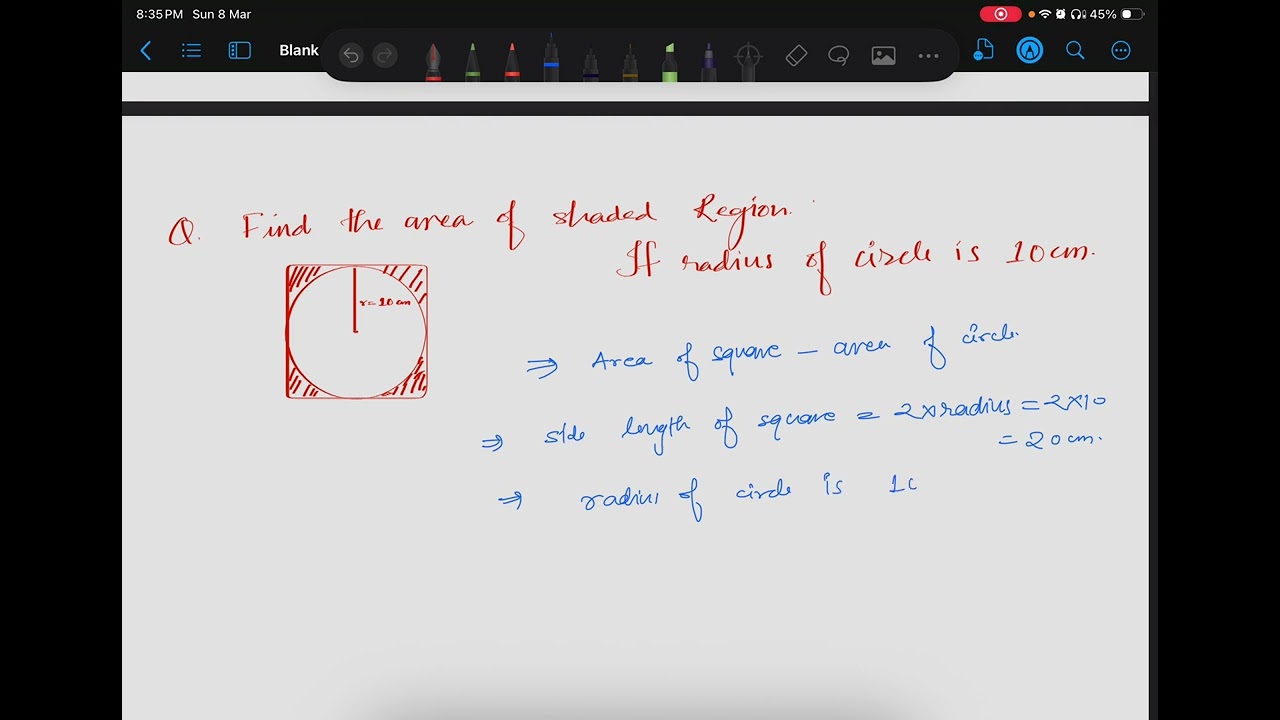 8:35 PM Sun 8 Mar 45%
Blank
Q. Find the area of shaded Region.
If radius of circle is 10cm.
r=10cm
⇒ Area of square – area of circle.
⇒ side length of square = 2×radius = 2×10
= 20cm.
⇒ radius of circle is 10